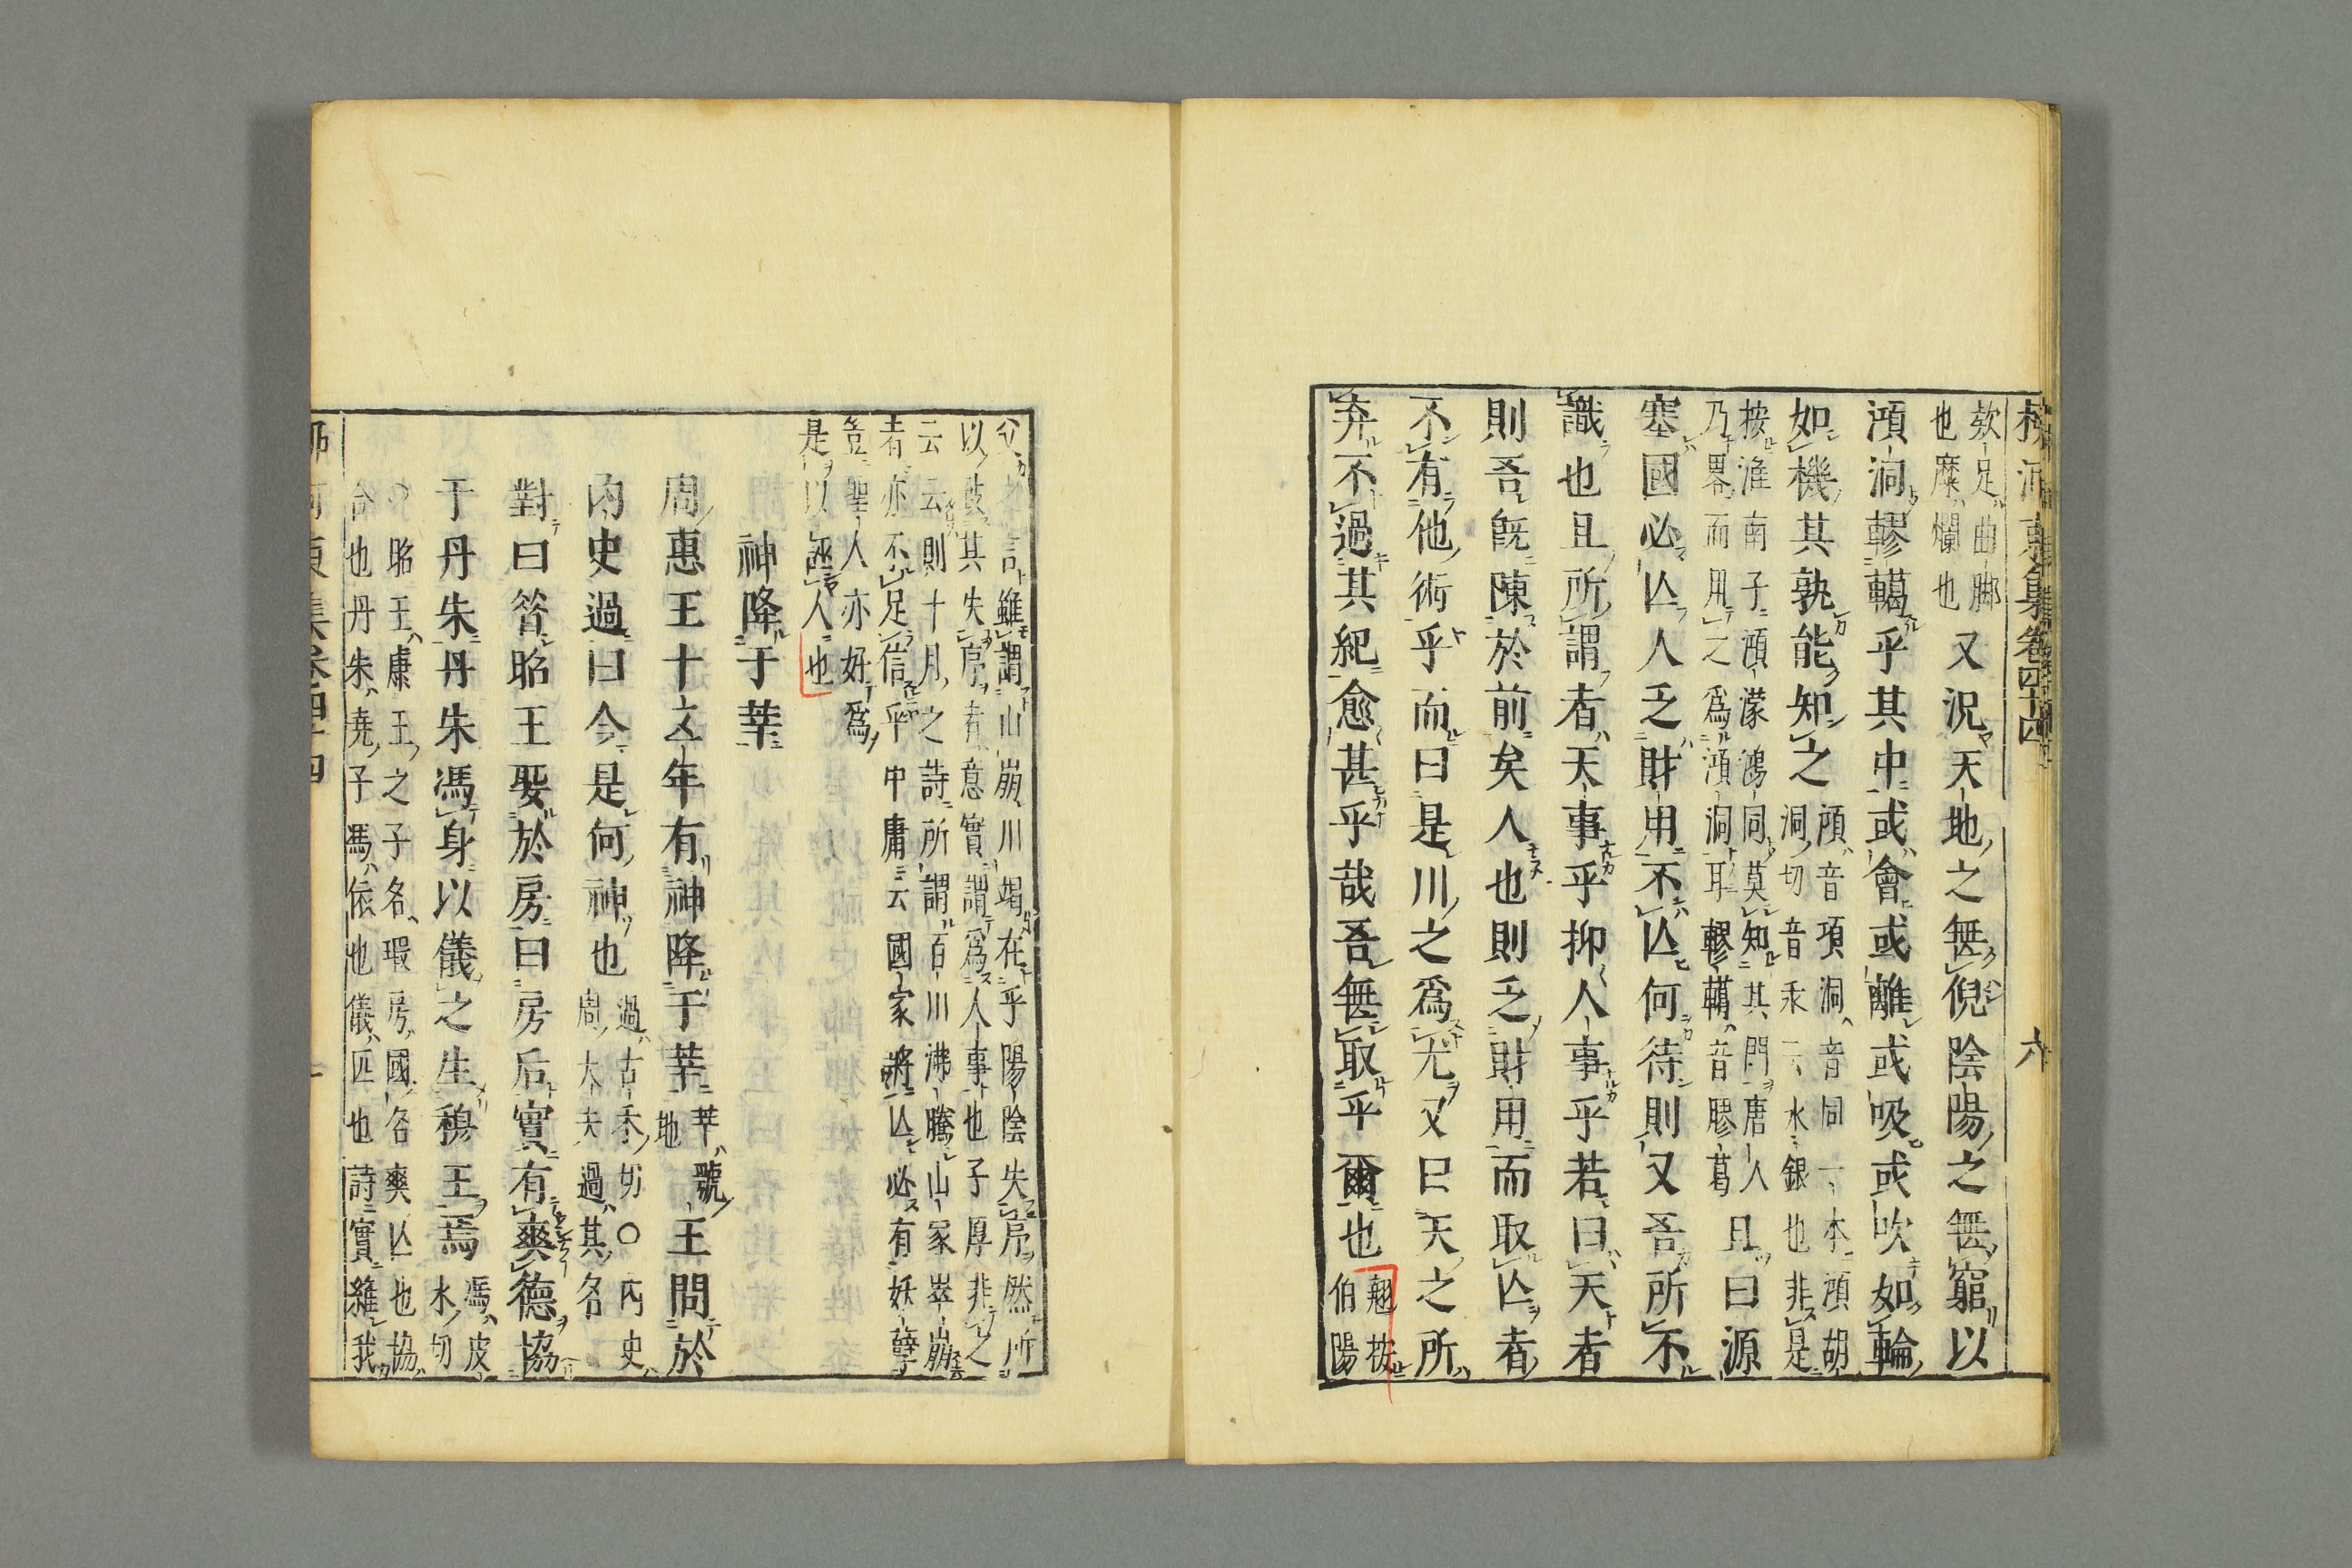 河東集卷四十四 六
欬足曲脚
也糜爛也
又況天地之無倪陰陽之無窮以
澒洞轇轕乎其中或會或離或吸或吹如輪
如機其孰能知之
澒音項洞音同一本澒胡
洞切音汞云水銀也非是
按淮南子澒濛鴻同莫知其門唐人
乃畧而用之爲澒洞耳轇轕音膠葛
且曰源
塞國必亾人乏財用不亾何待則又吾所不
識也且所謂者天事乎抑人事乎若曰天者
則吾旣陳於前矣人也則乏財用而取亾者
不有他術乎而曰是川之爲尤又曰天之所
弃不過其紀愈甚乎哉吾無取乎爾也
翹按
伯陽
父 言雖謂山崩川竭在乎陽陰失序然所
以 其失序者意實謂爲人事也子厚非之
云云則十月之詩所謂百川沸騰山冢崒崩
者亦不足信乎中庸云國家將亾必有妖孽
豈聖人亦好爲
是以誣人也
神降于莘
周惠王十五年有神降于莘
莘虢
地
王問於
內史過曰今是何神也
過古禾切○內史
周大夫過其名
對曰昔昭王娶於房曰房后實有爽德協
于丹朱丹朱馮身以儀之生穆王焉
馮皮
氷切
○昭王康王之子名瑕房國名爽亾也協
合也丹朱堯子馮依也儀匹也詩實維我
河東集卷四十四